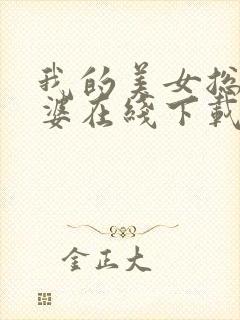 我的美女总
婆在线下载
金正大